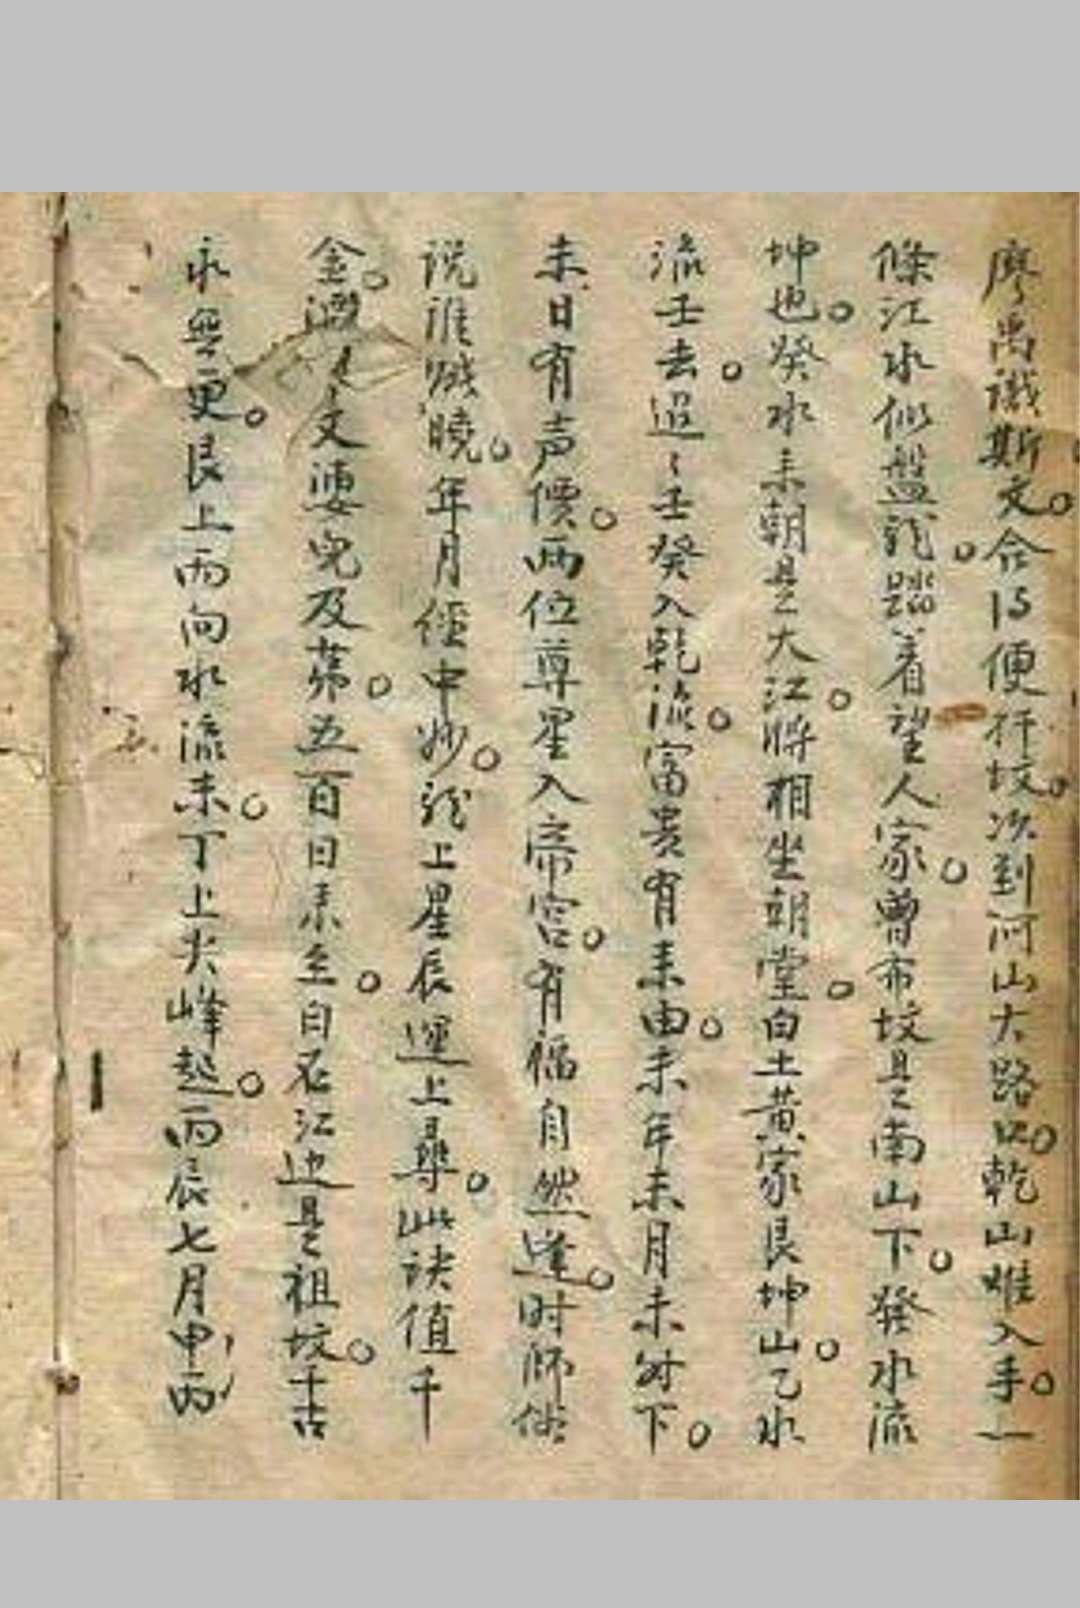 廖禹識斯文合得便扦坟次到河山大路口乾山难入手一
條江水似盤龍踏着望人家曾布坟是南山下癸水流
坤也癸水来朝是大江将相坐朝堂白土黄家艮坤山乙水
流壬去迢〻壬癸入乾流富贵有来由未年未月未时下
未日有声價两位尊星入帝宫有福自然逢时师供
说谁能曉年月经中妙龍上星辰運上尋此诀值千
金潤人文運児及第五百日来至白石江边是祖坟千古
永無更艮上丙向水流未丁上尖峰起丙辰七月申丙